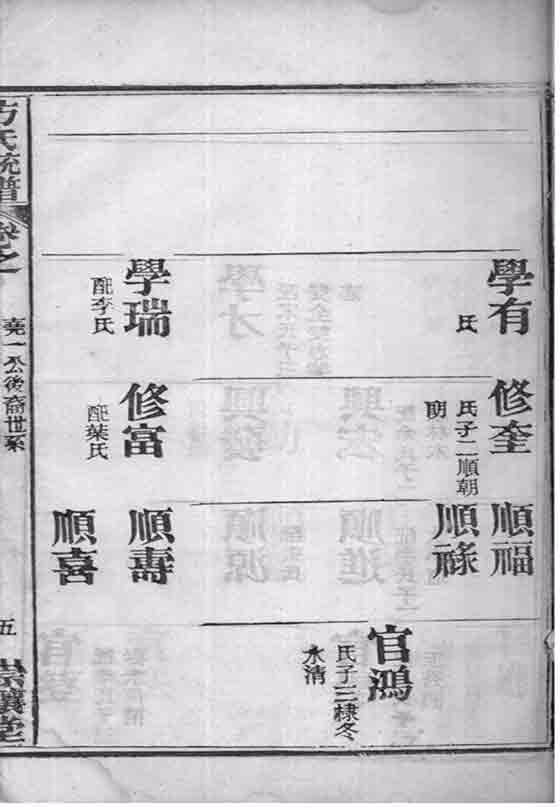 學有
氏
學瑞
配李氏
修奎
氏子二順朝
修富
配葉氏
順福
順祿
順壽
順喜
官鴻
氏子三棣冬
水清
方氏統譜
卷之一
堯一公後裔世系
五
崇讓堂